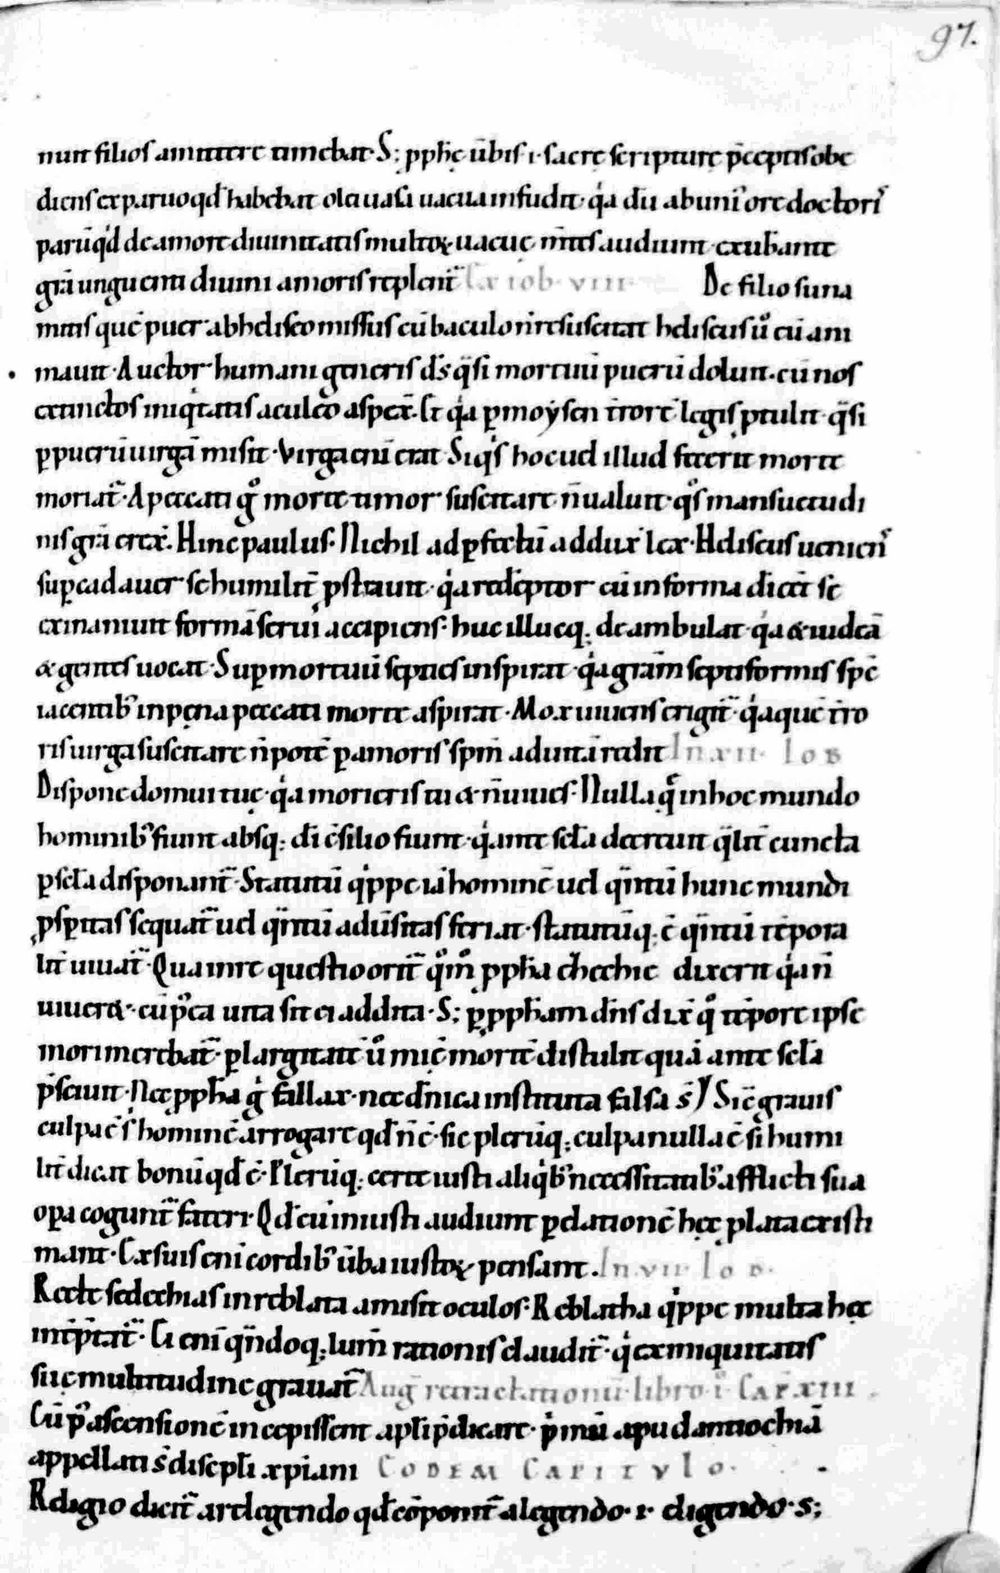 97.
nunt filios amittere timebat. S; pphę ūbis .i. sacrę scripturę p̄ceptis obe
diens ex paruo qd habebat olei uasa uacua infudit. qa dū ab uniꝰ ore doctoriˢ
parū qd de amore diuinitatis multoꝝ uacuę m̄tes audiunt exuƀante
grā unguenti diuini amoris replent̄ Ex iob. viii. De filio suna
mitis quē puer ab heliseo missus cū baculo n̄ resuscitat heliseus ů cū ani
mauit. Auctor humani generis dˢ qͣsi mortuū puerū doluit. cū nos
extinctos iniqͥtatis aculeo aspex̄. Et qa ꝑ moysen t̄rorē legis ꝓtulit. qͣsi
ꝑ puerū uirgā misit. Virga eni erat Siqͥs hoc uel illud fecerit morte
moriat̄. A peccati gͦ morte timor suscitare n̄ ualuit. qͦs mansuetudi
nis grā erex̄. Hinc paulus. Nichil ad ꝑfectū addux̄ lex. Heliseus ueniens
suꝑ cadauer se humilit̄ ꝓstrauit. qa redēptor cū in forma di eet se
exinaniuit formā serui accipiens. huc illucq; deambulat. qa & iudeā
& gentes uocat. Suꝑ mortuū septies inspirat. qa gram̄ septiformis spc̄
iacentibꝰ in pęna peccati morte aspirat. Mox uiuens erigit̄. qa quē t̄ro
ris uirga suscitare n̄ potē ꝑ amoris spm̄ ad uitā redit In xii. Iob
Dispone domui tuę. qa morieris tu & n̄ uiues. Nulla qͥ in hoc mundo
hominibꝰ fiunt absq; di c̄silio fiunt. qa ante scła decreuit qͣlit̄ cuncta
ꝑ scła disponant̄. Statutū qͥppe iā hominē uel qͣntū hunc mundi
ꝓsꝑitas sequat̄ uel qͣntū aduˢsitas feriat. statutūq; ē qͣntū tēpora
lit̄ uiuat̄. Qua in re questio orit̄ qͦm ꝓpha ezechie dixerit qa n̄
uiueret. cū pͦea uita sit ei addita. S; ꝑ ppham dn̄s dix̄ qͦ tēpore ipse
mori merebat̄. ꝑ largitatē ů mi͠e mortē distulit quā ante scła
p̄sciuit. Nec ppha gͥ fallax. nec dn̄ica instituta falsa sʳ Sic̄ grauis
culpa ē sͥ hominē arrogare qd n̄ ē. sic plerūq; culpa nulla ē si humi
lit̄ dicat bonū qd ē. Plerūq; certe iusti aliqͥbꝰ necessitatibꝰ afflicti sua
oꝑa cogunt̄ fateri. Qd cū iniusti audiunt ꝑ elationē hęc plata existi
mant. Ex suis eni cordibꝰ ūba iustoꝝ pensant. In vii. Iob.
Recte sedechias in reblata amisit oculos. Reblatha qͥppe multa hęc
int̄p̄tat̄. Ei eni qͣndoq; lum̄ rationis claudit̄. qͥ ex iniquitatis
suę multitudine grauat̄ Aug retractationū libro i. Cap̄. xiii.
Cū pͦ ascensionē incepissent apłi p̄dicare. pͥmū apud antiochiā
appellati s̄ discepłi xpiani Codem Capitvlo.
Religio dicit̄ a relegendo qd cōponit̄ a legendo. i. eligendo. S;